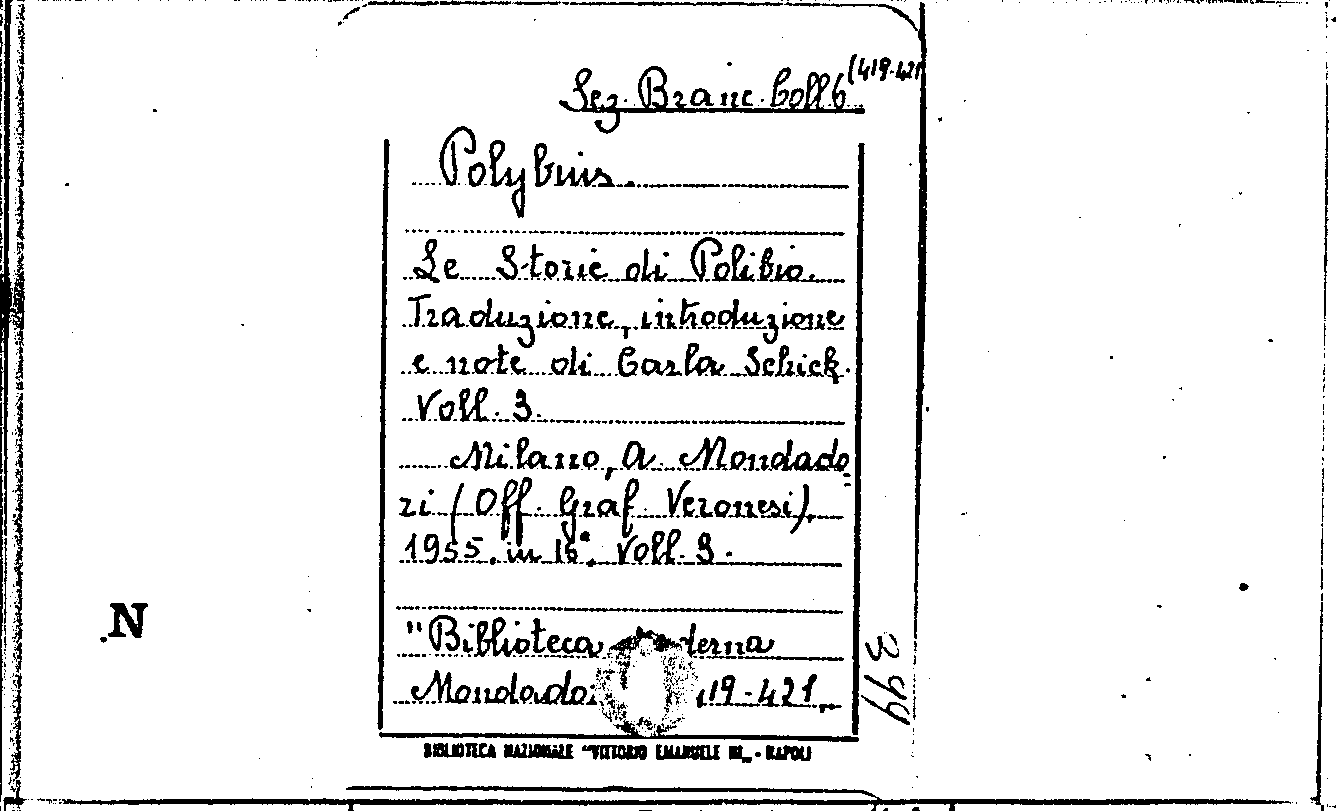 Sez. Branc. Coll 6 (419-421
Polybius.
Le Storie di Polibio.
Traduzione, introduzione
e note di Carla Schick.
Voll. 3.
Milano, A. Mondado=
ri (Off. Graf. Veronesi),
1955. in 16°. Voll. 3.
"Biblioteca derna
Mondado 19-421"
N
399
BIBLIOTECA NAZIONALE "VITTORIO EMANUELE III" - NAPOLI